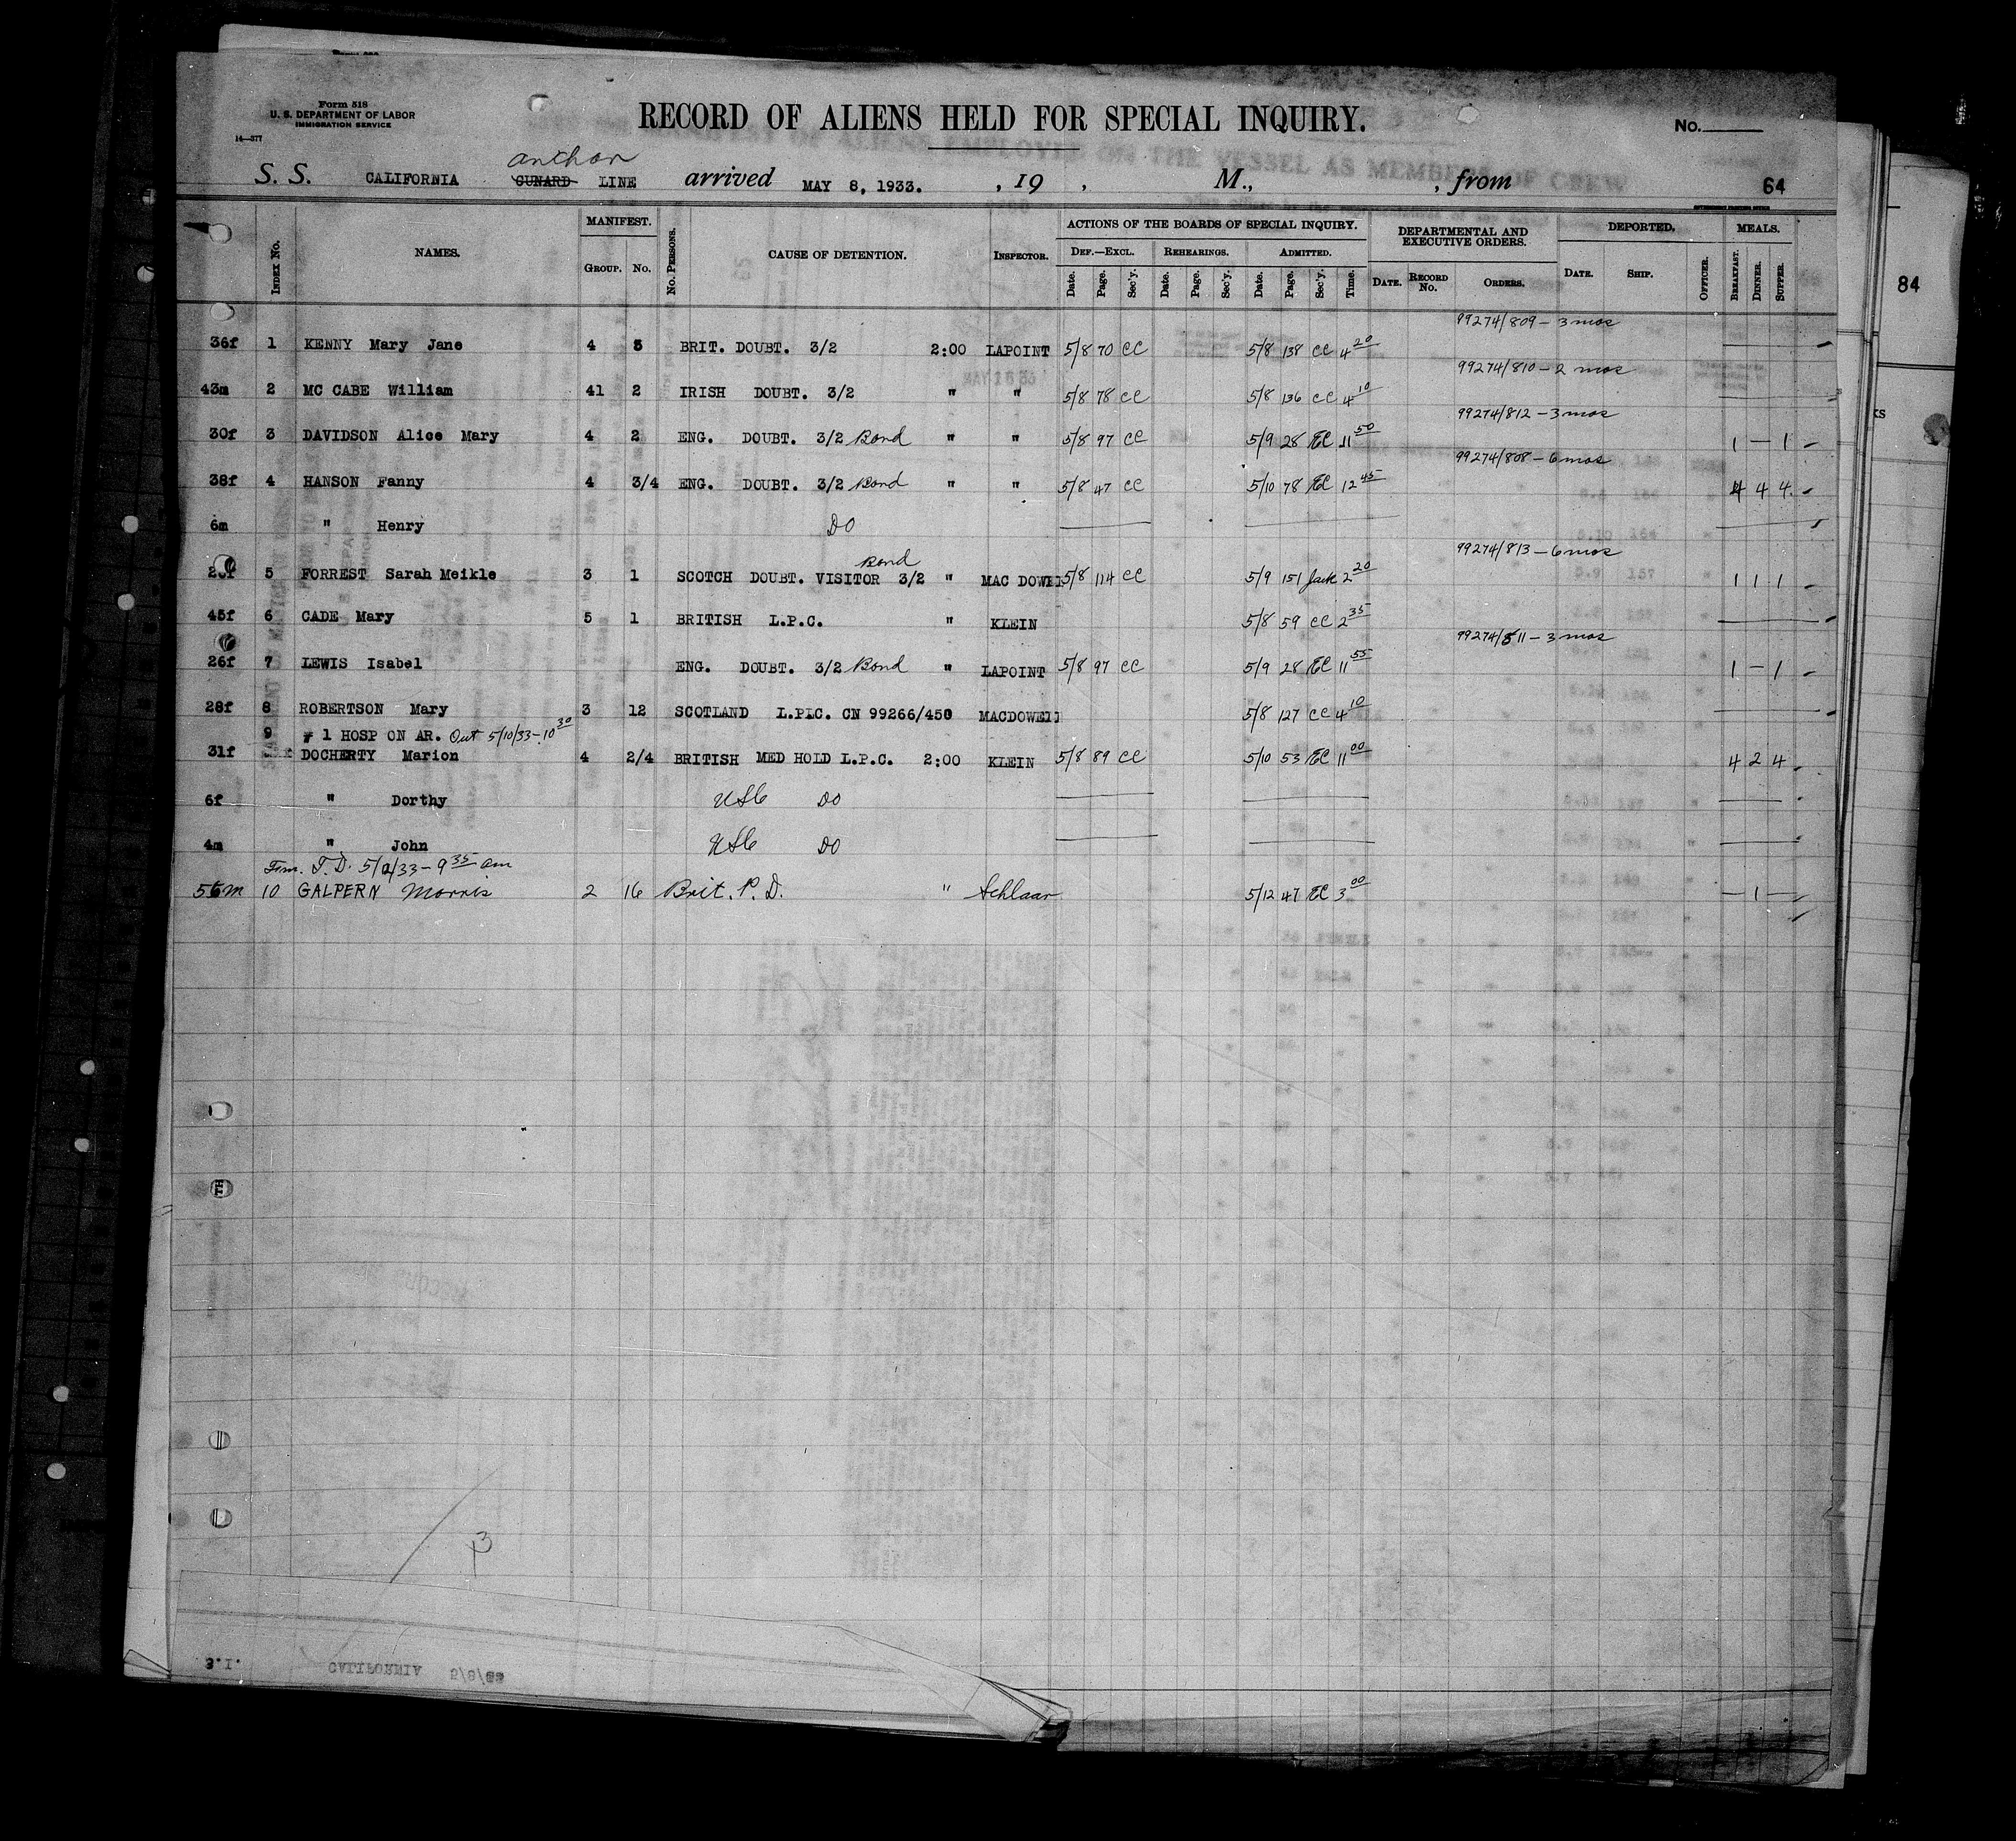 Form 518
U. S. DEPARTMENT OF LABOR
IMMIGRATION SERVICE
14—377
RECORD OF ALIENS HELD FOR SPECIAL INQUIRY.
No.
anchor
S. S. CALIFORNIA CUNARD LINE arrived MAY 8, 1933. , 19 , M., , from 64
Index No. NAMES. MANIFEST. GROUP. No. No. PERSONS. CAUSE OF DETENTION. INSPECTOR. ACTIONS OF THE BOARDS OF SPECIAL INQUIRY. DEF.—EXCL. REHEARINGS. ADMITTED. DEPARTMENTAL AND EXECUTIVE ORDERS. DEPORTED. MEALS.
Date. Page. Sec'y. Date. Page. Sec'y. Date. Page. Sec'y. Time. DATE. RECORD No. ORDERS. DATE. SHIP. OFFICER. BREAKFAST. DINNER. SUPPER.
84
99274/809 - 3 mos
36f 1 KENNY Mary Jane 4 5 BRIT. DOUBT. 3/2 2:00 LAPOINT 5/8 70 CC 5/8 138 CC 4 20
99274/810 - 2 mos
43m 2 MC CABE William 41 2 IRISH DOUBT. 3/2 " " 5/8 78 CC 5/8 136 CC 4 10
99274/812 - 3 mos
30f 3 DAVIDSON Alice Mary 4 2 ENG. DOUBT. 3/2 Bond " " 5/8 97 CC 5/9 28 EC 11 50 1 — 1
99274/808 - 6 mos
38f 4 HANSON Fanny 4 3/4 ENG. DOUBT. 3/2 Bond " " 5/8 47 CC 5/10 78 EC 12 45 4 4 4
6m " Henry DO
99274/813 - 6 mos
Bond
5 FORREST Sarah Meikle 3 1 SCOTCH DOUBT. VISITOR 3/2 " MAC DOWE 5/8 114 CC 5/9 151 Jack 2 20 1 1 1
45f 6 CADE Mary 5 1 BRITISH L.P.C. " KLEIN 5/8 59 CC 2 35
99274/811 - 3 mos
26f 7 LEWIS Isabel ENG. DOUBT. 3/2 Bond " LAPOINT 5/8 97 CC 5/9 28 EC 11 55 1 — 1
28f 8 ROBERTSON Mary 3 12 SCOTLAND L.P.C. CN 99266/450 MACDOWEL 5/8 127 CC 4 10
9 # 1 HOSP ON AR. Out 5/10/33 - 10 30
31f DOCHERTY Marion 4 2/4 BRITISH MED HOLD L.P.C. 2:00 KLEIN 5/8 89 CC 5/10 53 EC 11 00 4 2 4
6f " Dorthy USC DO
4m " John USC DO
T.D. 5/12/33 - 9 35 am
56m 10 GALPERN Morris 2 16 Brit. P. D. " Schlaar 5/12 47 EC 3 00 — 1 —
3
S.I. CALIFORNIA 5/8/33